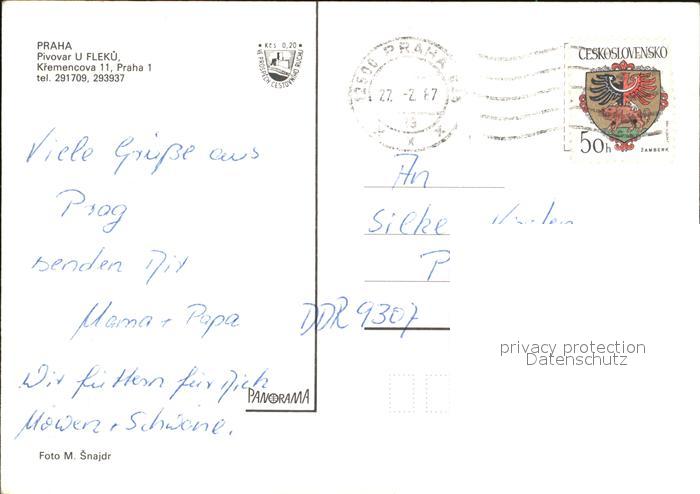 PRAHA
Pivovar U FLEKŮ,
Křemencova 11, Praha 1
tel. 291709, 293937
Kčs 0,20
VE PROSPĚCH CESTOVNÍHO RUCHU
PRAHA
27. -2. 87
ČESKOSLOVENSKO
50h
ŽAMBERK
Viele Grüße aus
Prag
senden Dir
Mama + Papa
Wir füttern für Dich
Möwen + Schwäne.
An
Silke
P
DDR 9307
PANORAMA
Foto M. Šnajdr
privacy protection
Datenschutz